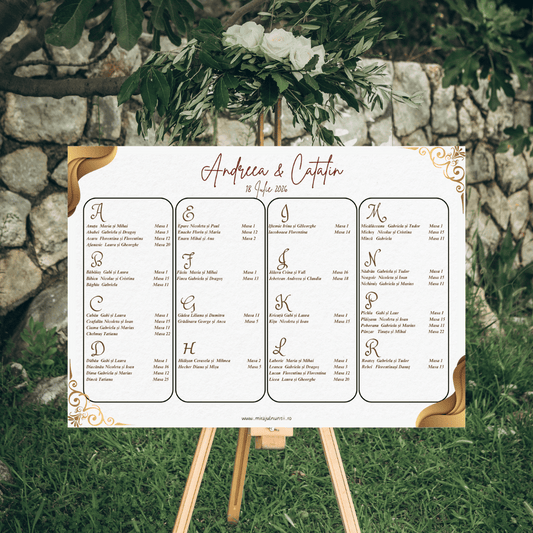 Andreea & Catalin
18 Iulie 2026
A
Anton Maria și Mihai Masa 1
Andrei Gabriela și Dragoș Masa 5
Avaru Florentina și Florentina Masa 12
Afanasie Laura și Gheorghe Masa 20
B
Bălălău Gabi și Laura Masa 1
Bălăca Nicoleta și Ioan Masa 15
Bărgău Gabriela Masa 11
C
Cabău Gabi și Laura Masa 1
Ceafalău Nicoleta și Ioan Masa 15
Ceana Gabriela și Marius Masa 11
Chelmuș Tatiana Masa 22
D
Dăbâla Gabi și Laura Masa 1
Diaconău Nicoleta și Ioan Masa 16
Dima Gabriela și Marius Masa 12
Dincă Tatiana Masa 25
E
Epure Nicoleta și Paul Masa 1
Enache Florin și Maria Masa 13
Enaru Mihai și Ana Masa 2
F
Făsie Maria și Mihai Masa 1
Finea Gabriela și Dragoș Masa 13
G
Gâdea Liliana și Dumitru Masa 11
Grădinaru George și Anca Masa 5
H
Hălășan Consuela și Mihnea Masa 2
Hector Diana și Mișa Masa 5
I
Masa 1
Iacobeanu Florentina Masa 14
J
Jălava Crina și Vali Masa 16
Jeberean Andreea și Claudiu Masa 18
K
Kerință Gabi și Laura Masa 1
Kița Nicoleta și Ioan Masa 15
L
Laborie Maria și Mihai Masa 1
Leancu Gabriela și Dragoș Masa 5
Lucan Florentina și Florentina Masa 12
Licea Laura și Gheorghe Masa 20
M
Gabriela și Tudor Masa 1
Micluș Nicoleta și Cristina Masa 15
Mincă Gabriela Masa 11
N
Nădrău Gabriela și Tudor Masa 1
Neagoie Nicoleta și Ioan Masa 15
Nichiruș Gabriela și Marius Masa 11
P
Pichiu Gabi și Luar Masa 1
Plăișanu Nicoleta și Ioan Masa 15
Poheranu Gabriela și Marius Masa 11
Pârcav Tianța și Mihai Masa 22
R
Rountez Gabriela și Tudor Masa 1
Rebei Florentina și Danuț Masa 15